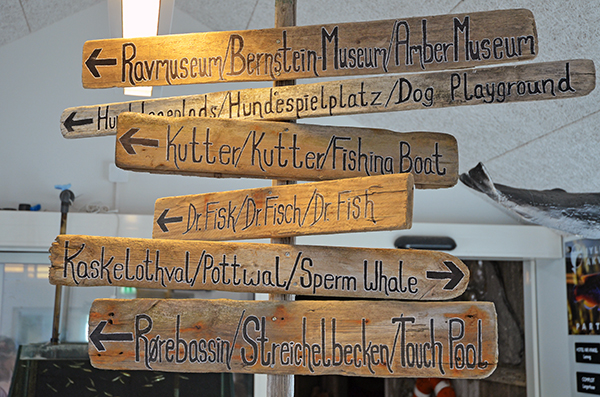 Ravmuseum/Bernstein-Museum/Amber Museum
/Hundespielplatz/Dog Playground
Kutter/Kutter/Fishing Boat
Dr. Fisk/Dr. Fisch/Dr. Fish
Kaskelothval/Pottwal/Sperm Whale
Rørebassin/Streichelbecken/Touch Pool